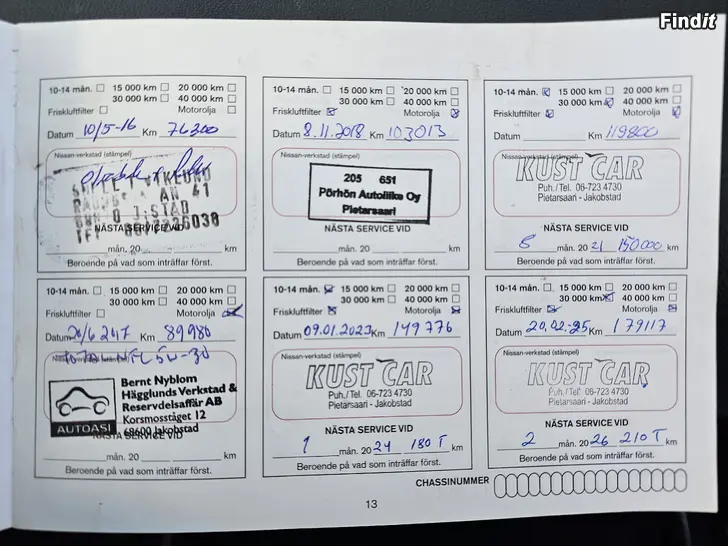 Findit
10-14 mån. 15 000 km 20 000 km
30 000 km 40 000 km
Friskluftfilter Motorolja
Datum 10/5-16 Km 76300
Nissan-verkstad (stämpel)
AN 41
NÄSTA SERVICE VID
mån. 20 km
Beroende på vad som inträffar först.
10-14 mån. 15 000 km 20 000 km
30 000 km 40 000 km
Friskluftfilter Motorolja
Datum 8.11.2018 Km 103013
Nissan-verkstad (stämpel)
205 651
Pörhön Autoliike Oy
Pietarsaari
NÄSTA SERVICE VID
mån. 20 km
Beroende på vad som inträffar först.
10-14 mån. 15 000 km 20 000 km
30 000 km 40 000 km
Friskluftfilter Motorolja
Datum Km 119800
Nissan-verkstad (stämpel)
KUST CAR
Puh./Tel. 06-723 4730
Pietarsaari - Jakobstad
NÄSTA SERVICE VID
5 mån. 20 21 150000 km
Beroende på vad som inträffar först.
10-14 mån. 15 000 km 20 000 km
30 000 km 40 000 km
Friskluftfilter Motorolja
Datum 20/6 2017 Km 89980
5W-30
Nissan-verkstad (stämpel)
AUTOASI
Bernt Nyblom
Hägglunds Verkstad &
Reservdelsaffär AB
Korsmosståget 12
68600 Jakobstad
NÄSTA SERVICE VID
mån. 20 km
Beroende på vad som inträffar först.
10-14 mån. 15 000 km 20 000 km
30 000 km 40 000 km
Friskluftfilter Motorolja
Datum 09.01.2023 Km 149776
Nissan-verkstad (stämpel)
KUST CAR
Puh./Tel. 06-723 4730
Pietarsaari - Jakobstad
NÄSTA SERVICE VID
1 mån. 20 24 180 T km
Beroende på vad som inträffar först.
10-14 mån. 15 000 km 20 000 km
30 000 km 40 000 km
Friskluftfilter Motorolja
Datum 20.02.-25 Km 179117
Nissan-verkstad (stämpel)
KUST CAR
Puh./Tel. 06-723 4730
Pietarsaari - Jakobstad
NÄSTA SERVICE VID
2 mån. 20 26 210 T km
Beroende på vad som inträffar först.
CHASSINUMMER
13